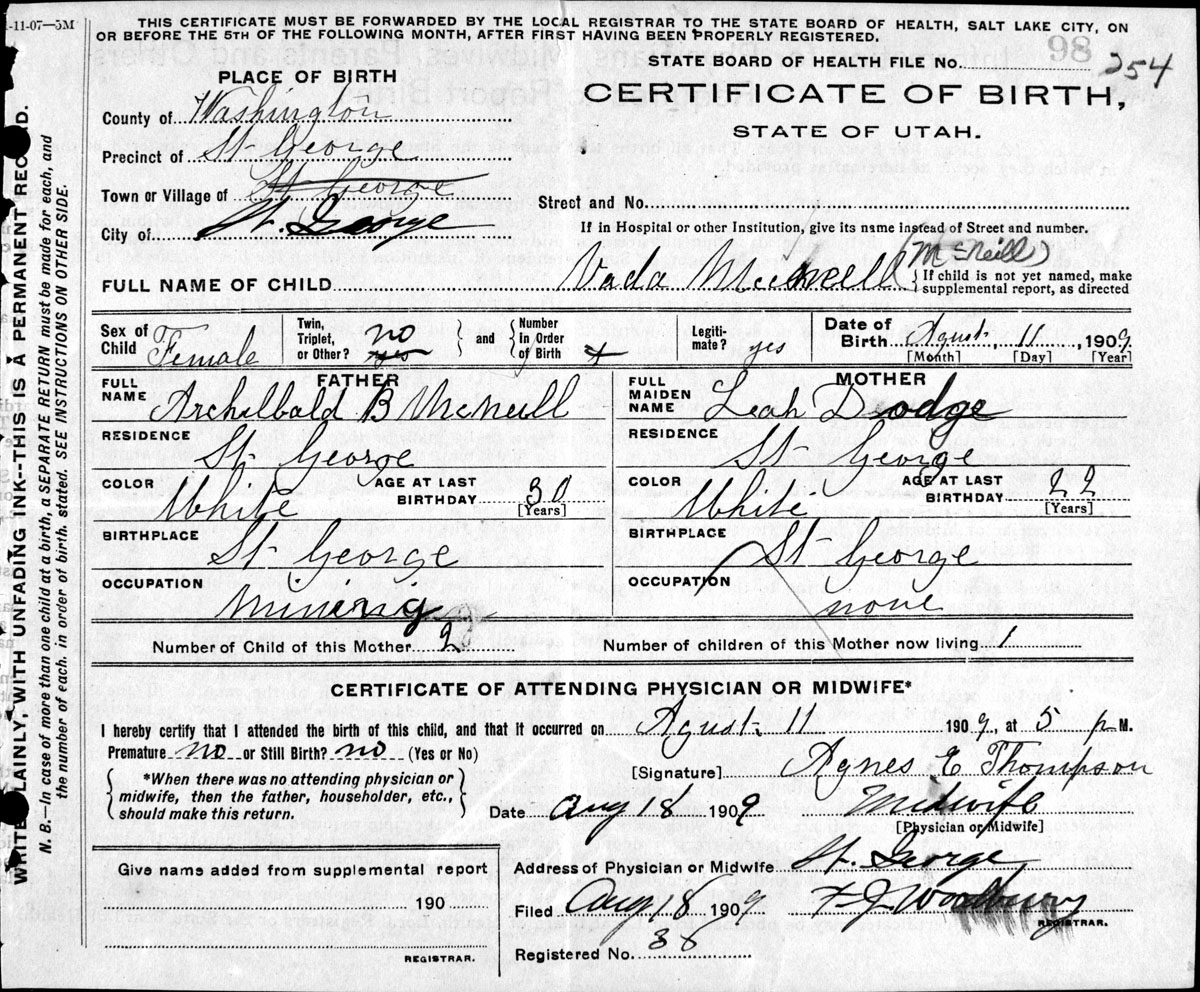 -11-07—5M
THIS CERTIFICATE MUST BE FORWARDED BY THE LOCAL REGISTRAR TO THE STATE BOARD OF HEALTH, SALT LAKE CITY, ON
OR BEFORE THE 5TH OF THE FOLLOWING MONTH, AFTER FIRST HAVING BEEN PROPERLY REGISTERED.
98
STATE BOARD OF HEALTH FILE No. 254
PLACE OF BIRTH
CERTIFICATE OF BIRTH,
STATE OF UTAH.
County of Washington
Precinct of St George
Town or Village of St George
City of St. George
Street and No.
If in Hospital or other Institution, give its name instead of Street and number.
FULL NAME OF CHILD Vada McNeill (McNeill)
If child is not yet named, make
supplemental report, as directed
Sex of Child Female
Twin, Triplet, or Other? no yes
and
Number In Order of Birth
Legitimate? yes
Date of Birth Agust 11 1909
[Month] [Day] [Year]
FATHER
FULL NAME Archilbald B McNeill
RESIDENCE St George
COLOR White
AGE AT LAST BIRTHDAY 30 [Years]
BIRTHPLACE St George
OCCUPATION Mining
MOTHER
FULL MAIDEN NAME Leah Dodge
RESIDENCE St George
COLOR White
AGE AT LAST BIRTHDAY 22 [Years]
BIRTHPLACE St George
OCCUPATION none
Number of Child of this Mother 2
Number of children of this Mother now living 1
CERTIFICATE OF ATTENDING PHYSICIAN OR MIDWIFE*
I hereby certify that I attended the birth of this child, and that it occurred on Agust 11 1909, at 5 p M.
Premature no or Still Birth? no (Yes or No)
*When there was no attending physician or
midwife, then the father, householder, etc.,
should make this return.
[Signature] Agnes E Thompson
Date Aug 18 1909 Midwife
[Physician or Midwife]
Address of Physician or Midwife St. George
Filed Aug 18 1909 F J Woodbury
REGISTRAR.
Registered No. 38
Give name added from supplemental report
190
REGISTRAR.
WRITE PLAINLY, WITH UNFADING INK--THIS IS A PERMANENT RECORD.
N. B.—In case of more than one child at a birth, a SEPARATE RETURN must be made for each, and
the number of each, in order of birth, stated. SEE INSTRUCTIONS ON OTHER SIDE.